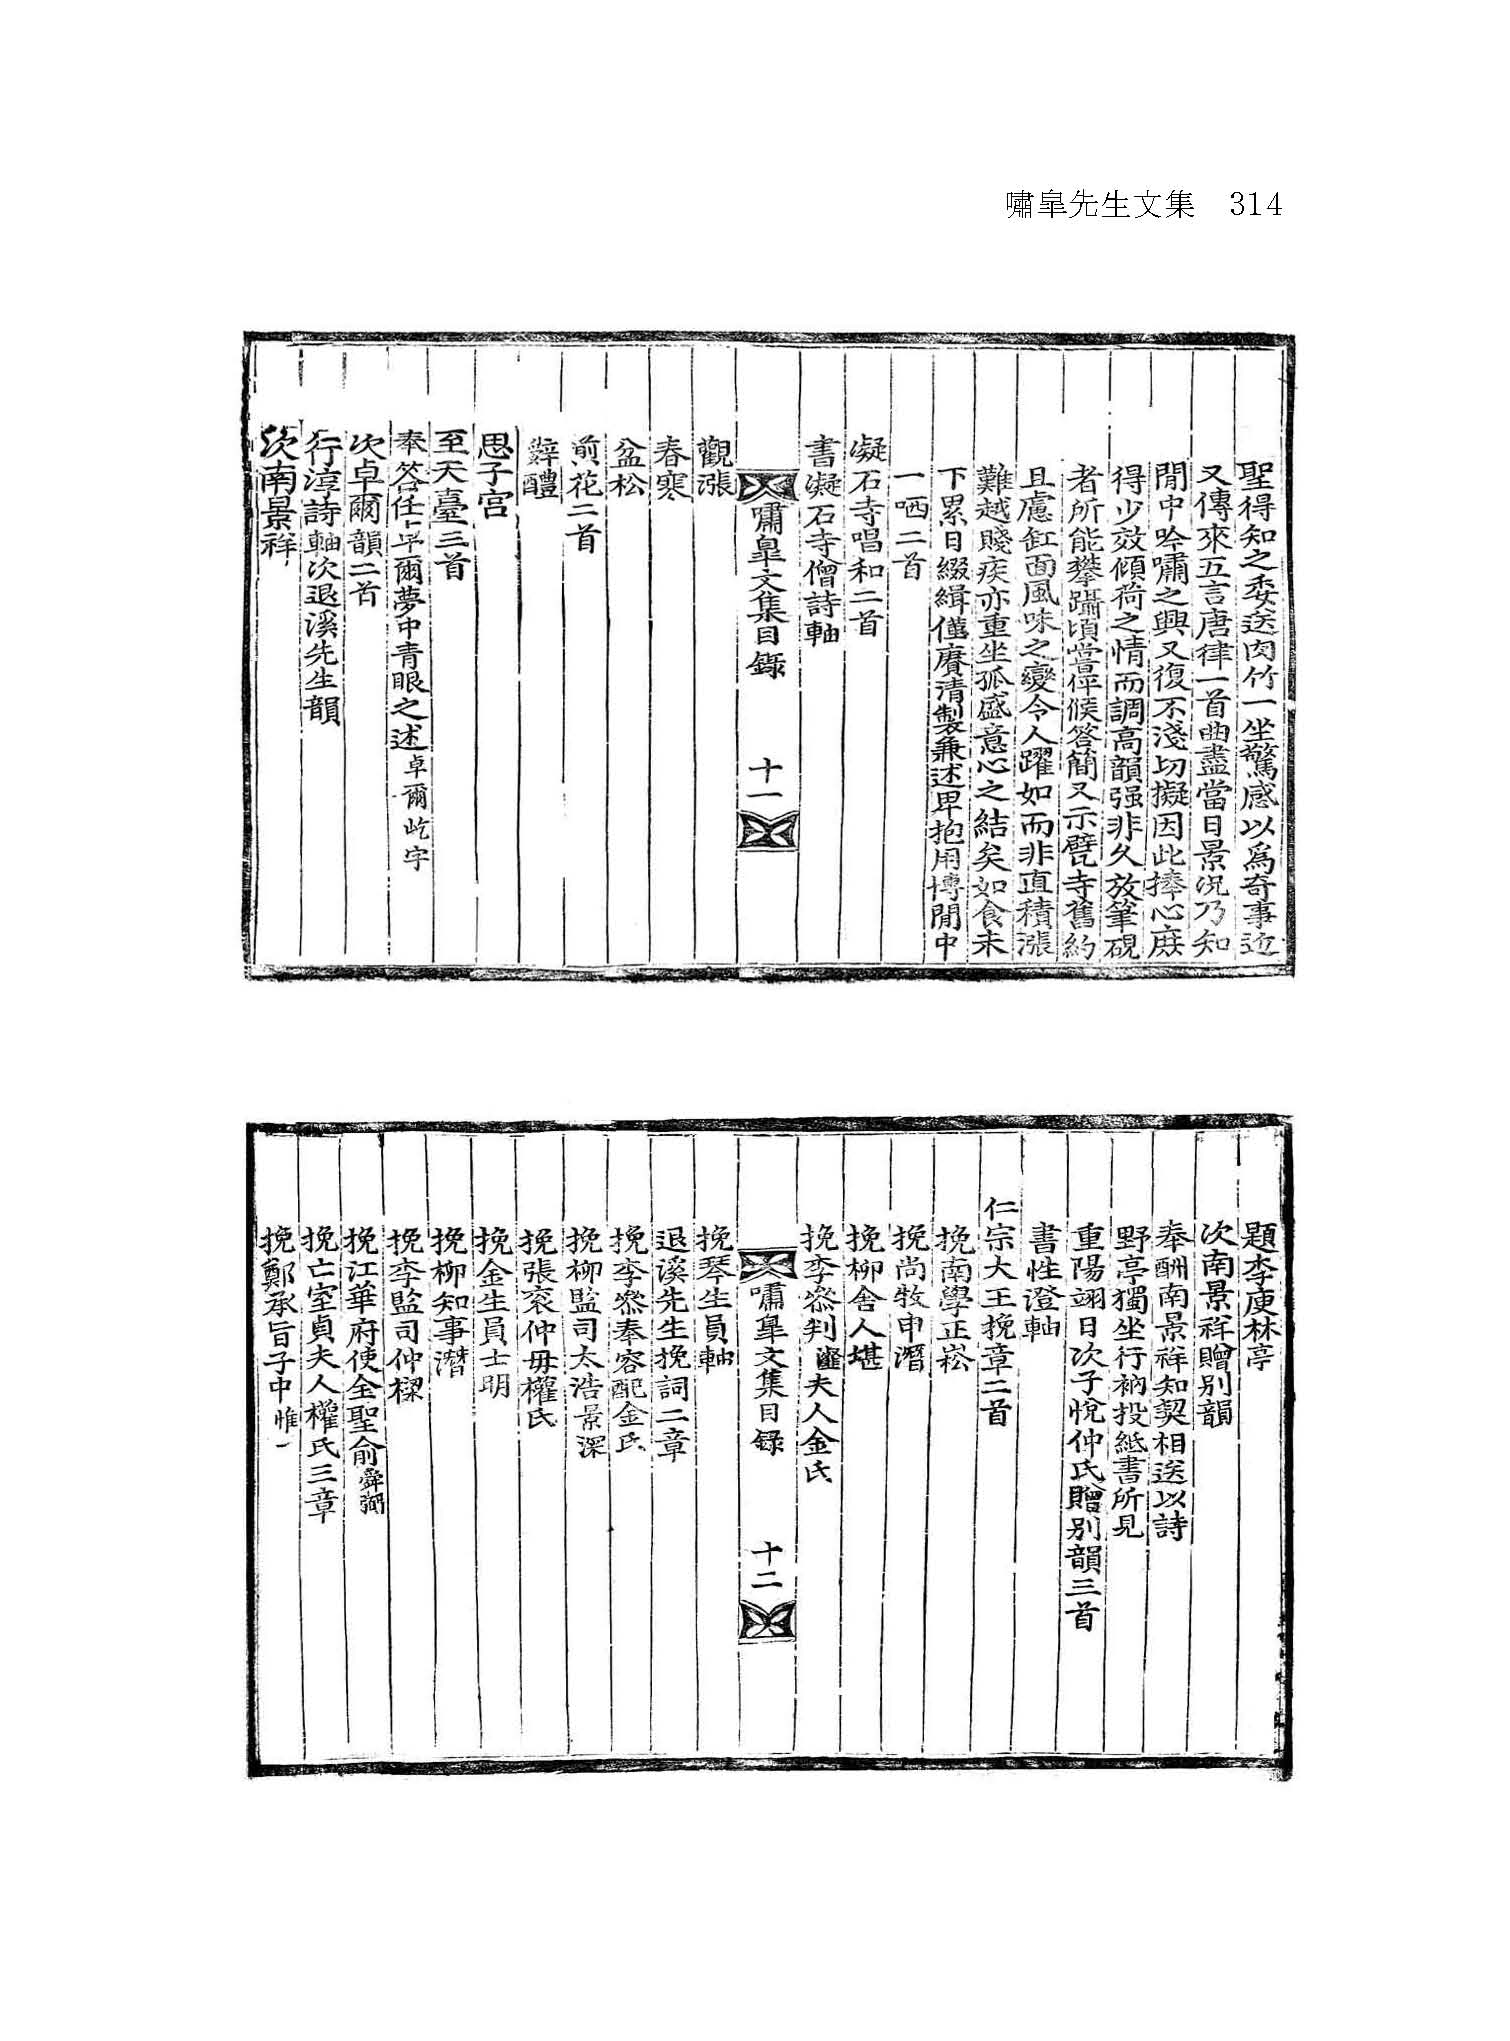 嘯皐先生文集 314
聖得知之委送肉竹一坐驚感以爲奇事近
又傳來五言唐律一首曲盡當日景况乃知
閒中吟嘯之興又復不淺切擬因此捧心庶
得少效傾荷之情而調高韻强非久放筆硯
者所能攀躡頃當伻候答簡又示甓寺舊約
且慮缸面風味之變令人躍如而非直積漲
難越賤疾亦重坐孤盛意心之結矣如食未
下累日綴緝僅賡清製兼述卑抱用博閒中
一哂二首
凝石寺唱和二首
書凝石寺僧詩軸
嘯皐文集目錄 十一
觀漲
春寒
盆松
煎花二首
辭醴
思子宮
至天臺三首
奉答任上卓爾夢中青眼之述卓爾屹字
次卓爾韻二首
行淳詩軸次退溪先生韻
次南景祥
題李庚林亭
次南景祥贈別韻
奉酬南景祥知契相送以詩
野亭獨坐行衲投紙書所見
重陽翊日次子悅仲氏贈別韻三首
書性澄軸
仁宗大王挽章二首
挽南學正崧
挽尚牧申潛
挽柳舍人堪
挽李參判夫人金氏
嘯皐文集目錄 十二
挽琴生員軸
退溪先生挽詞二章
挽李參奉容配金氏
挽柳監司太浩景深
挽張衮仲母權氏
挽金生員士明
挽柳知事潛
挽李監司仲樑
挽江華府使全聖俞舜弼
挽亡室貞夫人權氏三章
挽鄭承旨子中惟一